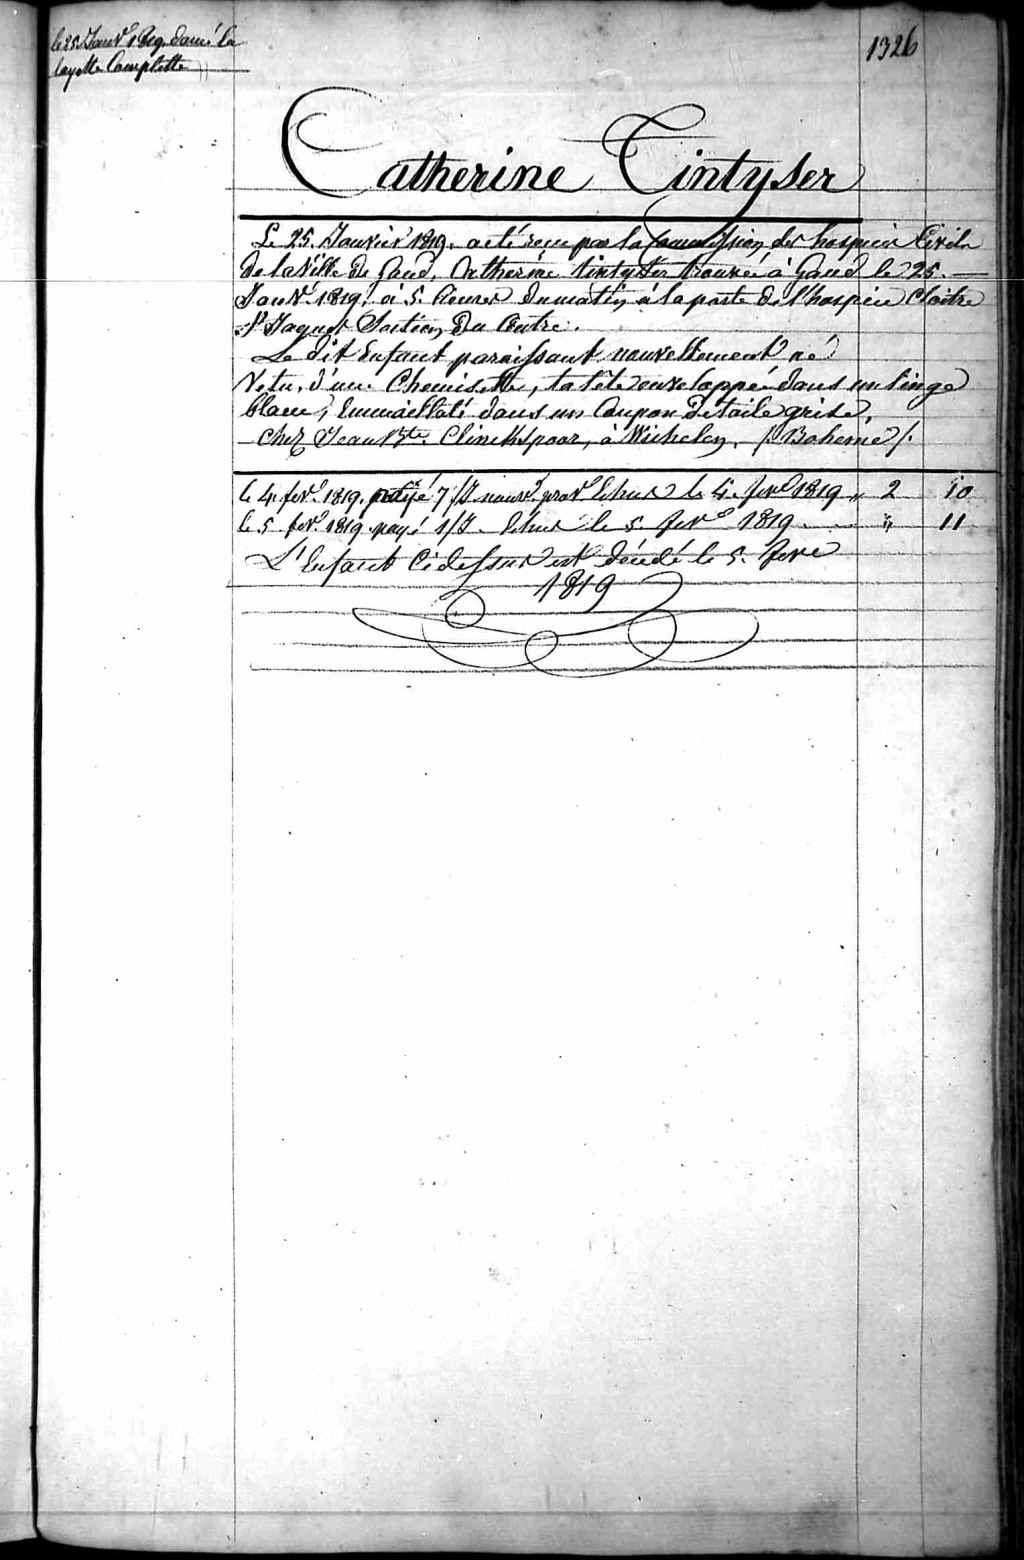 le 25 Janvr 1819. donné la
layette Complette
1326
Catherine Tintyser
Le 25. Janvier 1819. a eté recu par la Commission des hospices Civils
de la Ville de Gand, Catherine Tintyser trouvée à Gand le 25. —
Janvr. 1819. à 5. heures du matin, à la porte de l'hospice Cloître
St Jaques Section Du Centre.
Le dit Enfant paraissant nouvellement né
Vetu, d'une Chemisette, la tête enveloppée dans un linge
blanc, Emmailloté dans un Coupon de toile grise,
chez Jean Bte Clinckspoor, à Wichelen, /: Boheme /:
le 4. fevr. 1819. payé 7/J nourr. pror Echus le 4. fevr 1819 „ 2 10
le 5 fevr. 1819 payé 1/J. Echus le 5 fevr 1819. „ 11
L'Enfant Cidessus est décédé le 5. fevr
1819